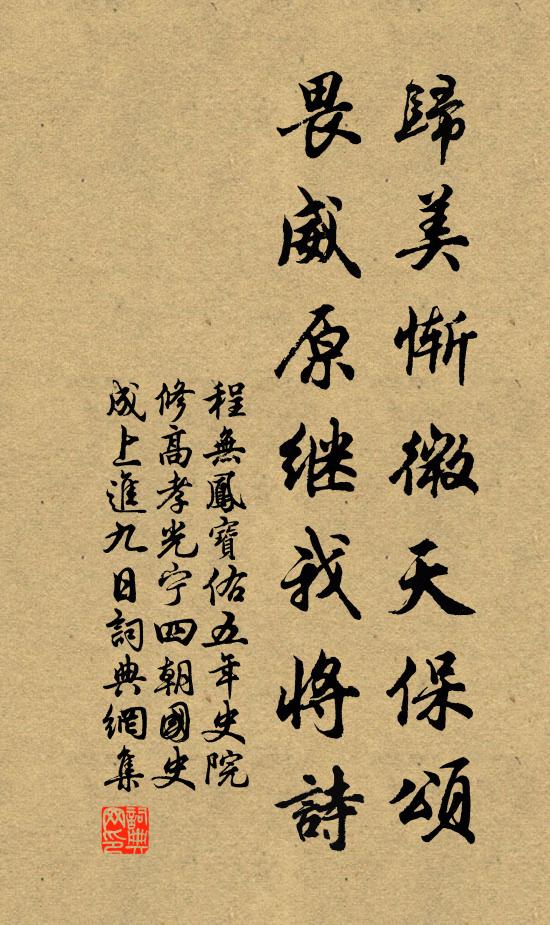 歸美惭微天保頌
畏威原继我將詩
程無鳳寶佑五年史院
修高孝光宁四朝國史
成上進九日詞典網集
詞典
网印